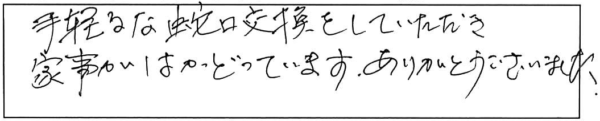 手軽るな蛇口交換をしていただき
家事がはかどっています。ありがとうございました。